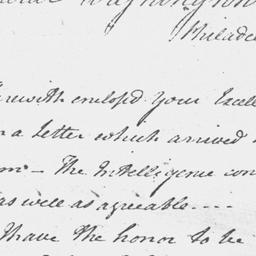 Washington
Philade
erewith enclosed your Excell
a letter which arrived
The Intelligence con
as well as agreable....
I have the honor to be